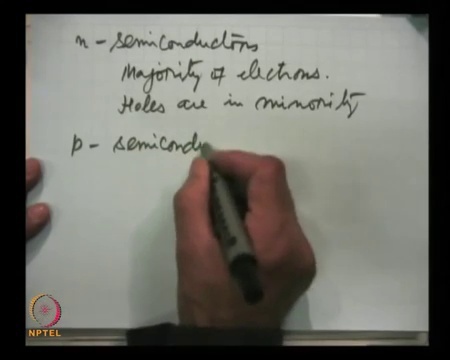 n - semiconductors
Majority of electrons.
Holes are in minority
p - semicondu
NPTEL